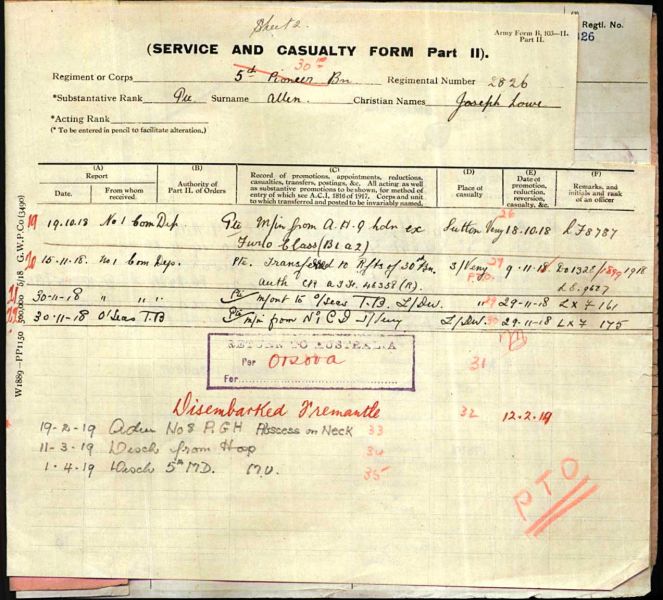 Sheet 2.
Army Form B. 103—II.
Part II.
Regtl. No.
26
(SERVICE AND CASUALTY FORM Part II).
30th
Regiment or Corps 5th Pioneer Bn Regimental Number 2826
*Substantive Rank Pte. Surname Allen. Christian Names Joseph Lowe
*Acting Rank
(* To be entered in pencil to facilitate alteration.)
(A) (B) (C) (D) (E) (F)
Report
Date. From whom received.
Authority of Part II. of Orders
Record of promotions, appointments, reductions,
casualties, transfers, postings, &c. All acting as well
as substantive promotions to be shown, for method of
entry of which see A.C.I. 1816 of 1917. Corps and unit
to which transferred and posted to be invariably named.
Place of casualty
Date of promotion, reduction, reversion, casualty, &c.
Remarks, and initials and rank of an officer
19 19.10.18 No 1 Com Dep Pte M/in from A.H.Q hdn ex Sutton Veny 26 18.10.18 LF8787
Furlo Class (B1 a 2)
20 15-11-18. No 1 Com Depo. Pte. Transferred to Rfts of 30th Bn. S/Veny 9-11-18 Do1328/1899 1918
Auth CM 46358 (R)
30-11-18 " " " Pte m/out to O/Seas T.B. L/Dev. 29-11-18 LX7 161
30-11-18 O'Seas T.B Pte m/in from No 1 C D S/Veny L/Dev. 29-11-18 LX7 175
RETURN TO AUSTRALIA
Per Orsova
For
31
Disembarked Fremantle 32 12.2.19
19-2-19 Adm No 8 P.GH Abscess on Neck 33
11-3-19 Disch from Hosp 34
1.4.19 Disch 5th M.D. M.U. 35
PTO
W1889—PP1150 500,000 5/18 G.W.P.Co (3490)